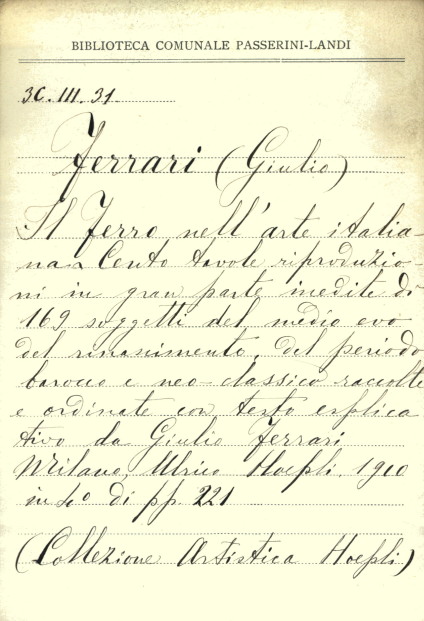 BIBLIOTECA COMUNALE PASSERINI-LANDI
3C. III. 31
Ferrari (Giulio)
Il Ferro nell'arte italia-
na Cento tavole riproduzio-
ni in gran parte inedite di
169 soggetti del medio evo
del rinascimento, del periodo
barocco e neo-classico raccolte
e ordinate con testo esplica
tivo da Giulio Ferrari
Milano, Ulrico Hoepli, 1910
in 4° di pp. 221
(Collezione Artistica Hoepli)